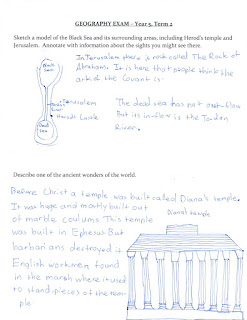 GEOGRAPHY EXAM - Year 5, Term 2
Sketch a model of the Black Sea and its surrounding areas, including Herod's temple and
Jerusalem. Annotate with information about the sights you might see there.
In Jerusalem there is rock called The Rock of
Abraham. It is here that people think the
ark of the Covant is
Black
Sea
Jerusalem
Herods Castle
The dead sea has not out flow
But its inflow is the Jordan
River.
Describe one of the ancient wonders of the world.
Before Christ a temple was built called Diana's temple.
It was huge and mostly built out
of marble coulums This temple
was built in Epherus But
barbarians destroyed it.
English workmen found
in the marsh where it used
to stand pieces of the tem
ple
Diana's temple